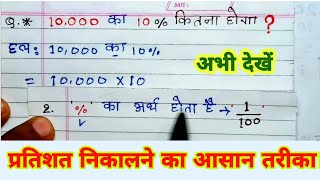 DATE
Q.* 10,000 का 10% कितना होगा ?
हल: 10,000 का 10%
अभी देखें
= 10,000 × 10
2. '%' का अर्थ होता है → 1/100
प्रतिशत निकालने का आसान तरीका